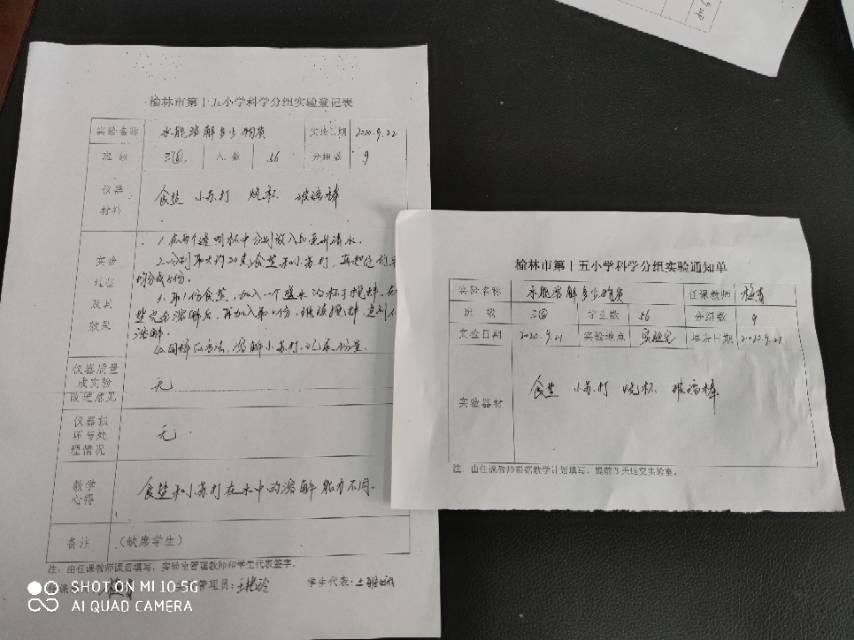 榆林市第十五小学科学分组实验登记表
实验名称 水能溶解多少物质 实验日期 2020.9.22
班级 三④ 人数 56 分组数 9
仪器材料 食盐 小苏打 烧杯 玻璃棒
实验
过程
及其
效果
1.在两个透明杯中分别放入50毫升清水。
2.分别取大约20克食盐和小苏打,再把它们
均分成8份。
3.取1份食盐,加入一个盛水的杯子搅拌,
盐完全溶解后,再加入第2份,继续搅拌,直到不
溶解。
4.同样的方法,溶解小苏打,记录份量。
仪器质量
或实验
改进意见
无
仪器损
坏与处
理情况
无.
教学
心得
食盐和小苏打在水中的溶解能力不同.
备注 (缺席学生)
注:由任课教师课后填写,实验室管理教师和学生代表签字。
管理员: 学生代表:
榆林市第十五小学科学分组实验通知单
实验名称 水能溶解多少物质 任课教师
班级 三④ 学生数 56 分组数 9
实验日期 2020.9.21 实验地点 实验室 2020.9.21
实验器材 食盐 小苏打 烧杯 玻璃棒
注:由任课教师根据教学计划填写,提前3天送交实验室。
SHOT ON MI 10 5G
AI QUAD CAMERA